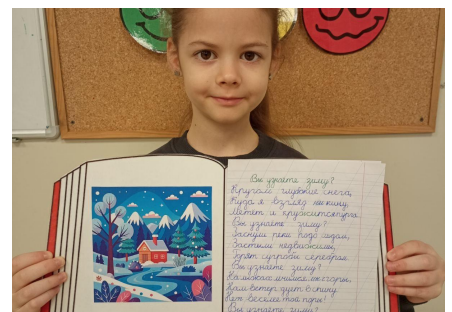 Вы узнаёте зиму?
Кругом глубокие снега,
Куда я взгляд ни кину,
Метёт и кружится пурга.
Вы узнаёте зиму?
Заснули реки подо льдом,
Застыли недвижимы,
Горят сугробы серебром.
Вы узнаёте зиму?
На лыжах мчимся мы с горы,
Нам ветер дует в спину.
Нет веселее той поры!
Вы узнаёте зиму?